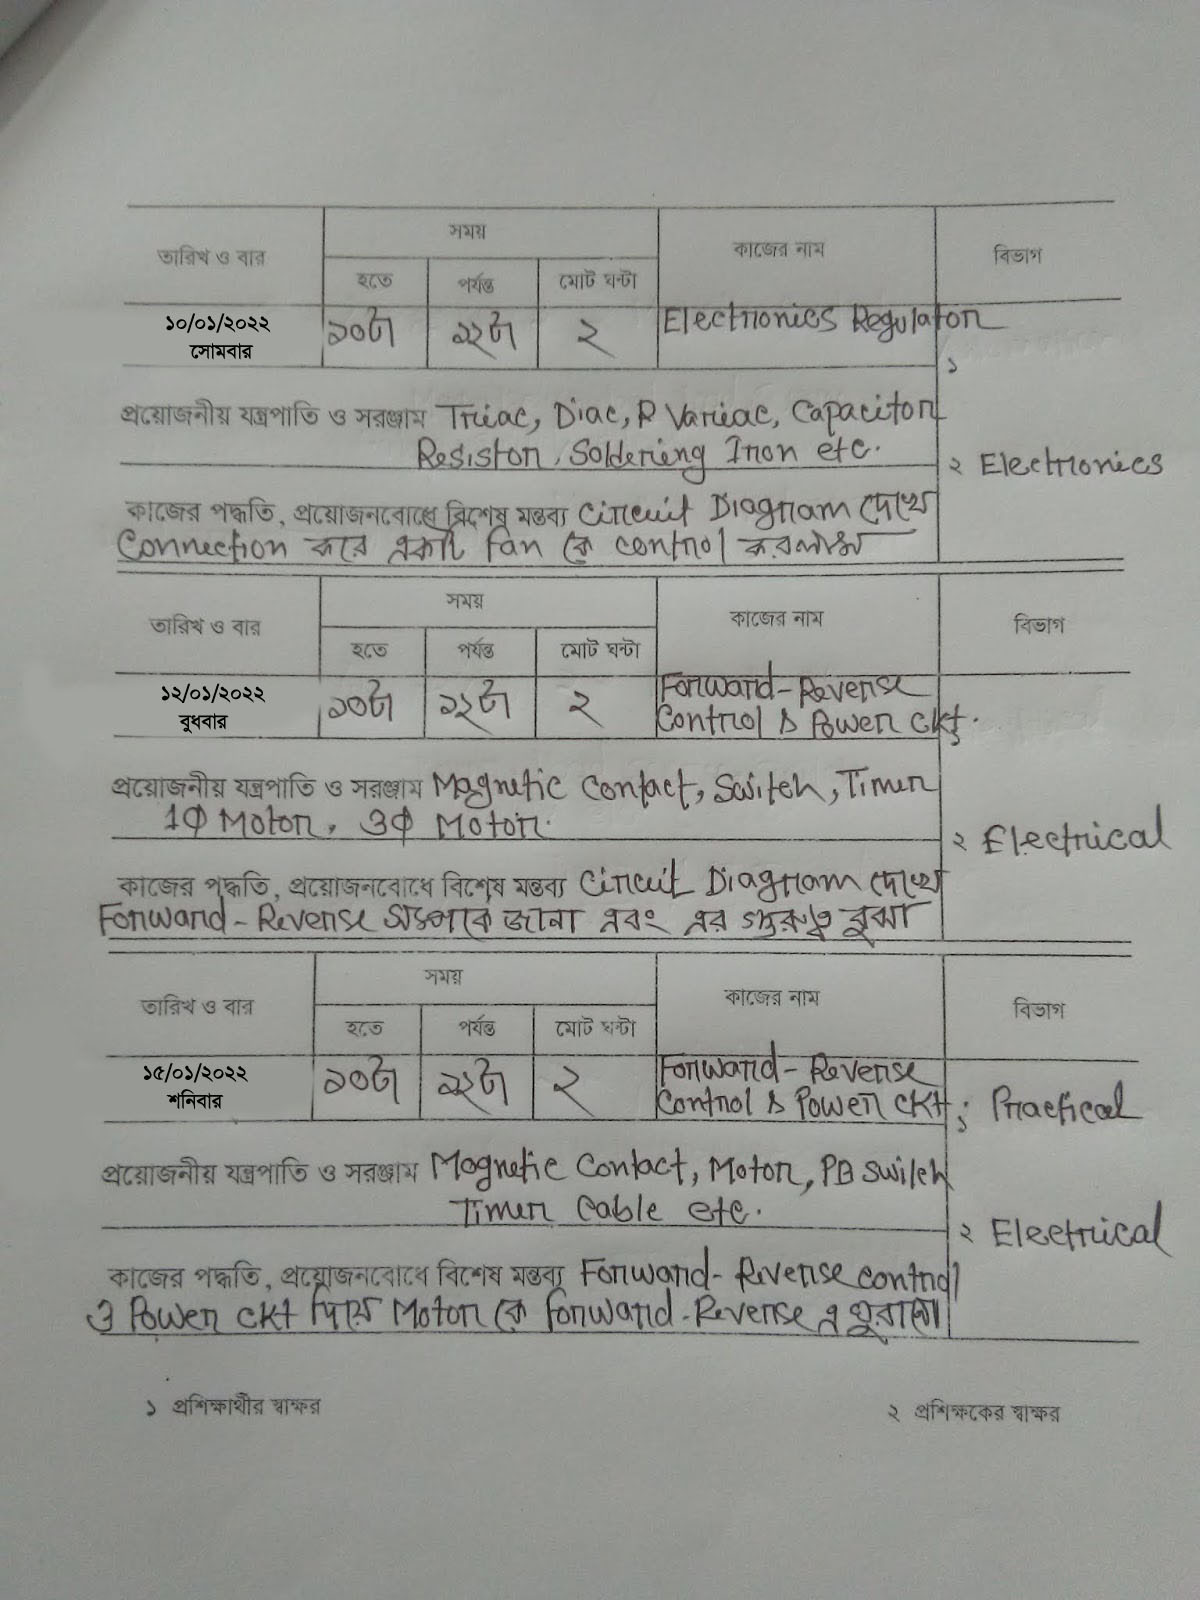 তারিখ ও বার সময় কাজের নাম বিভাগ
হতে পর্যন্ত মোট ঘন্টা
১০/০১/২০২২ ১০টা ১২টা ২ Electronics Regulator
সোমবার
১
প্রয়োজনীয় যন্ত্রপাতি ও সরঞ্জাম Triac, Diac, R Variac, Capacitor
Resistor, Soldering Iron etc.
২ Electronics
কাজের পদ্ধতি, প্রয়োজনবোধে বিশেষ মন্তব্য Circuit Diagram দেখে
Connection করে একটি Fan কে control করলাম
তারিখ ও বার সময় কাজের নাম বিভাগ
হতে পর্যন্ত মোট ঘন্টা
১২/০১/২০২২ ১০টা ১২টা ২ Forward-Reverse
বুধবার Control & Power ckt.
১
প্রয়োজনীয় যন্ত্রপাতি ও সরঞ্জাম Magnetic Contact, Switch, Timer
1Φ Motor, 3Φ Motor.
২ Electrical
কাজের পদ্ধতি, প্রয়োজনবোধে বিশেষ মন্তব্য Circuit Diagram দেখে
Forward-Reverse সম্পর্কে জানা এবং এর গুরুত্ব বুঝা
তারিখ ও বার সময় কাজের নাম বিভাগ
হতে পর্যন্ত মোট ঘন্টা
১৫/০১/২০২২ ১০টা ১২টা ২ Forward-Reverse
শনিবার Control & Power ckt ১ Practical
প্রয়োজনীয় যন্ত্রপাতি ও সরঞ্জাম Magnetic Contact, Motor, PB Switch
Timer Cable etc.
২ Electrical
কাজের পদ্ধতি, প্রয়োজনবোধে বিশেষ মন্তব্য Forward-Reverse control
ও Power ckt দিয়ে Motor কে Forward-Reverse এ ঘুরানো
১ প্রশিক্ষার্থীর স্বাক্ষর ২ প্রশিক্ষকের স্বাক্ষর